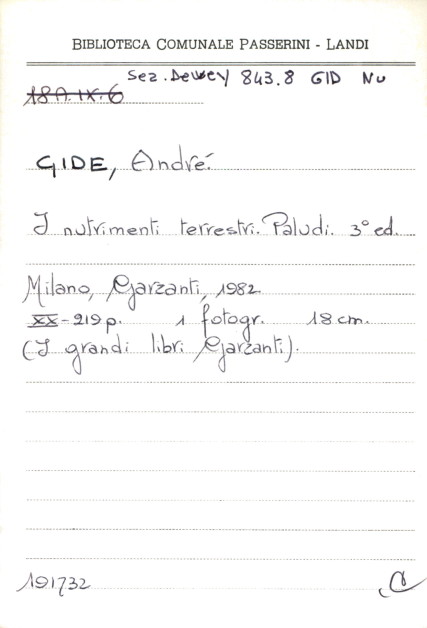 BIBLIOTECA COMUNALE PASSERINI - LANDI
Sez. Dewey 843.8 GID Nu
18A.IX.6
GIDE, André.
I nutrimenti terrestri. Paludi. 3° ed.
Milano, Garzanti, 1982
XX-219 p. 1 fotogr. 18 cm.
(I grandi libri Garzanti).
191732